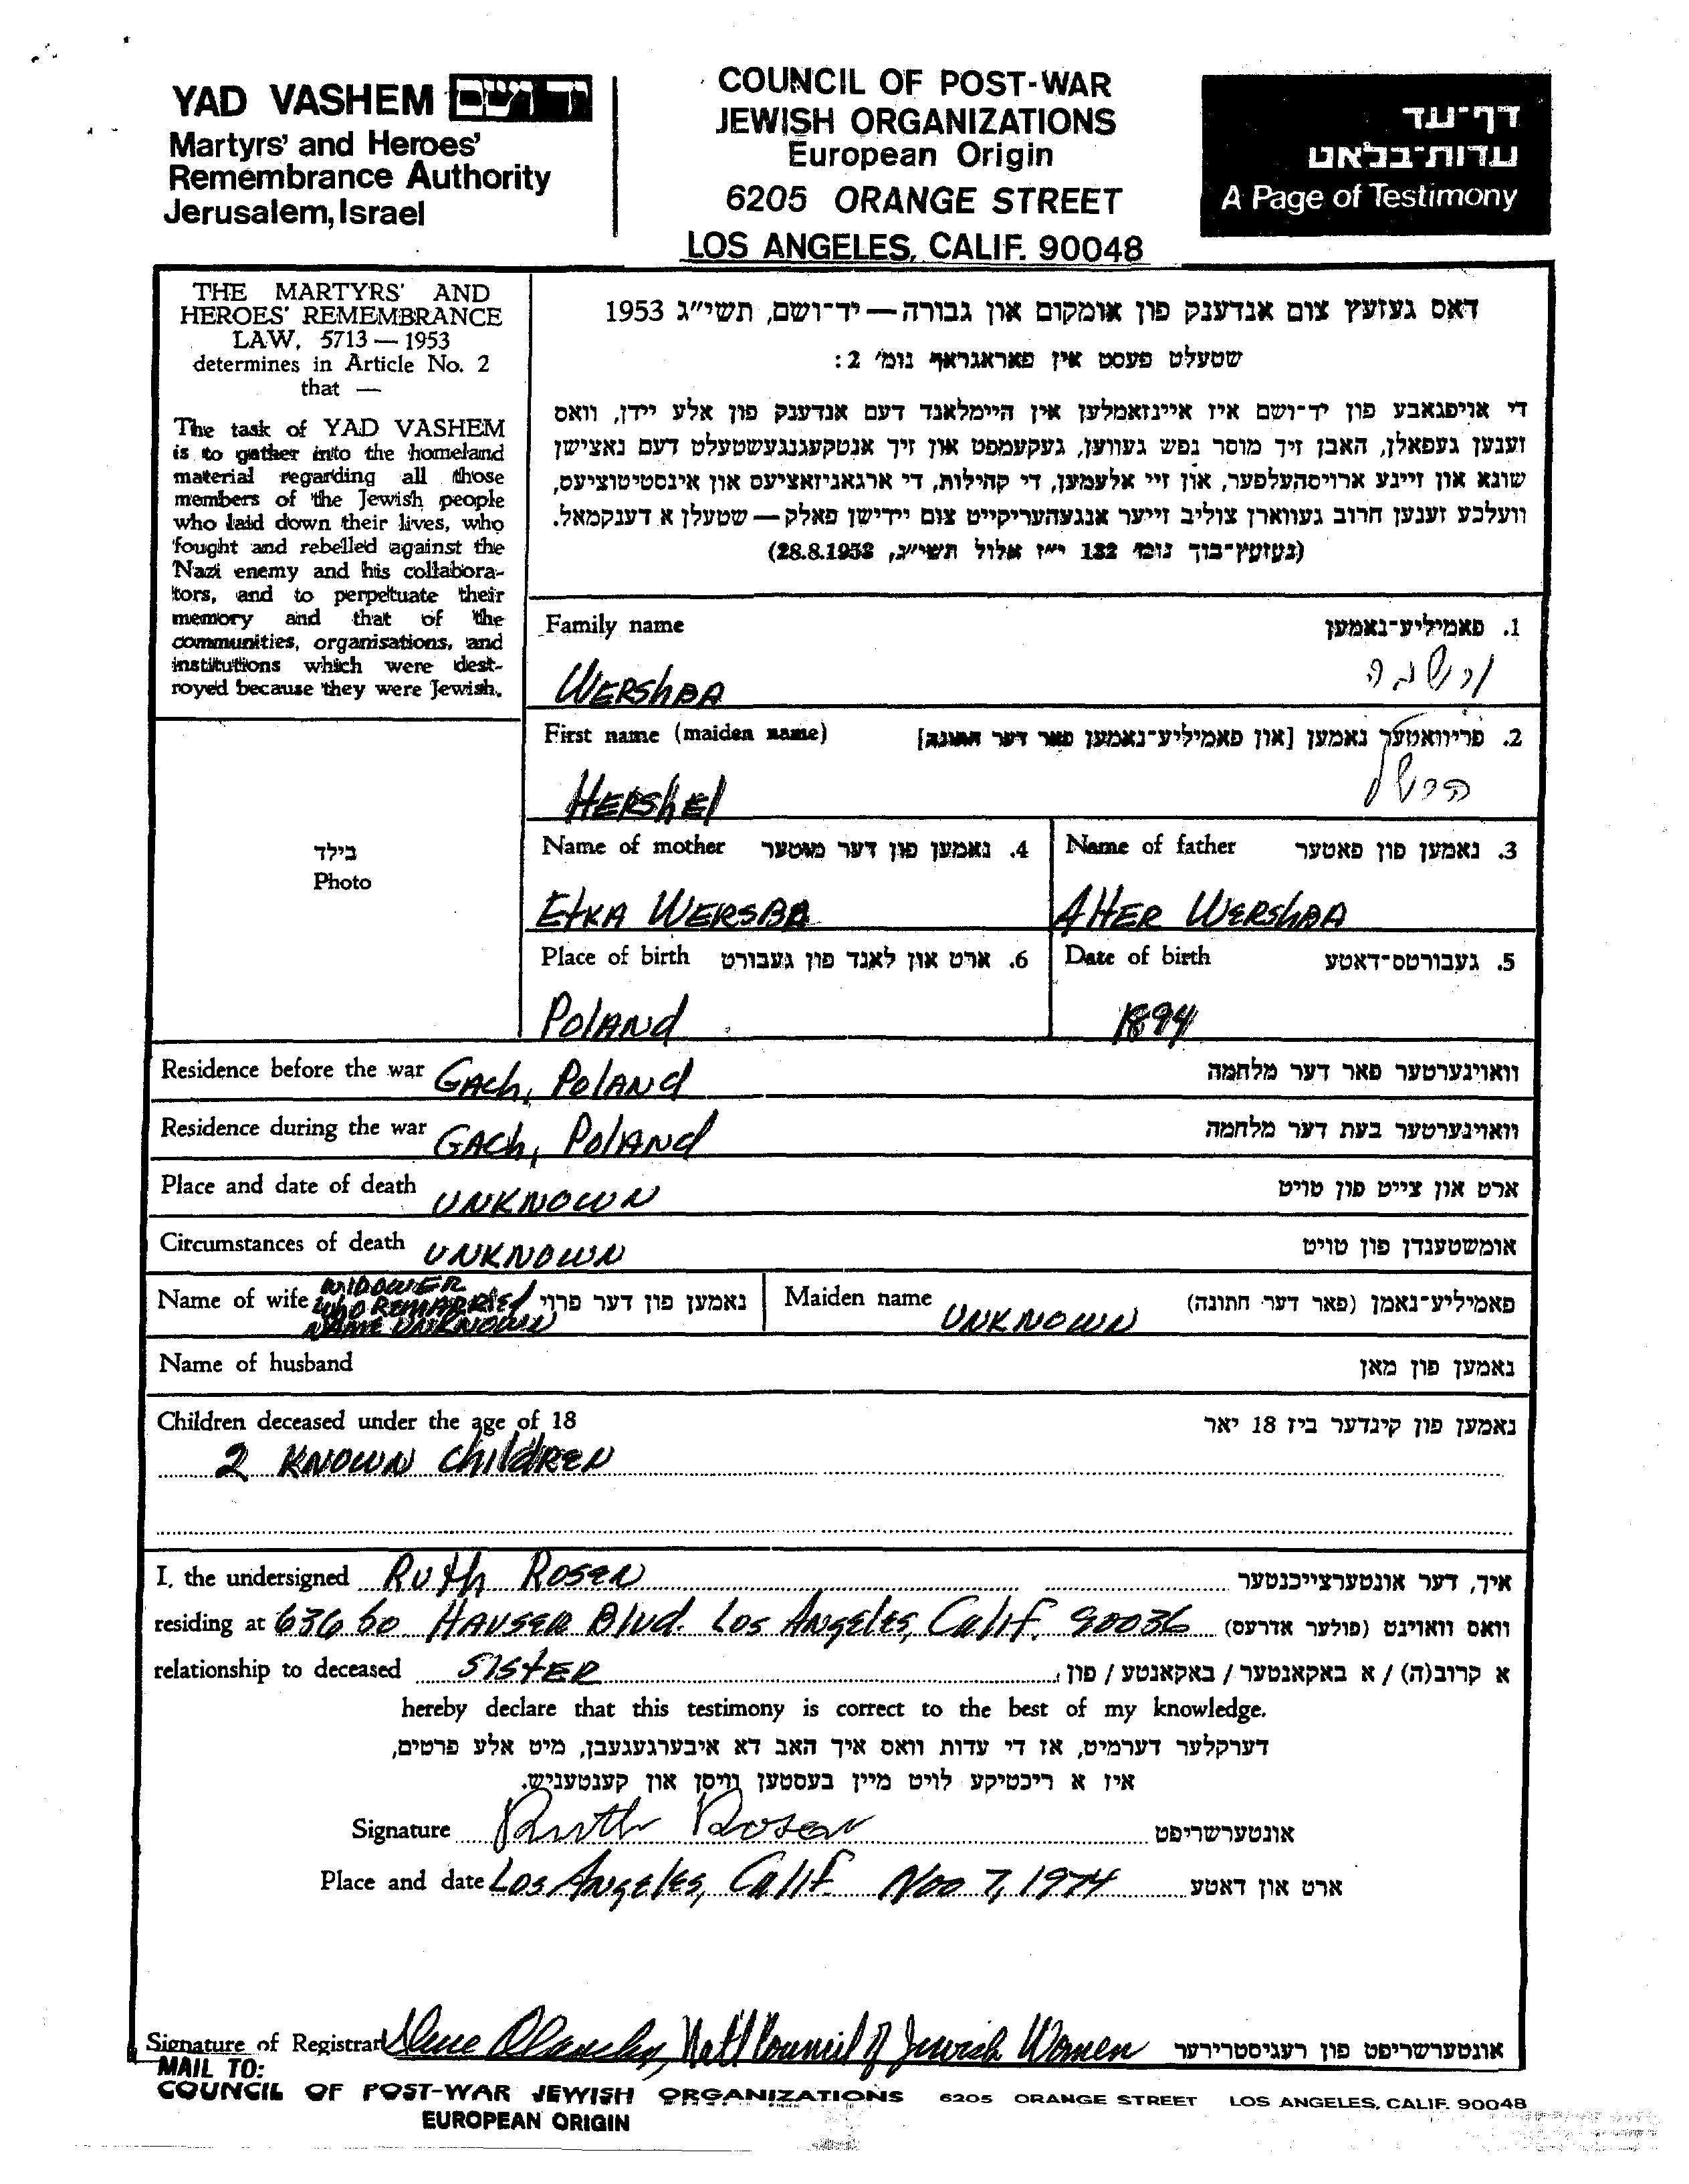 YAD VASHEM יד ושם
Martyrs' and Heroes'
Remembrance Authority
Jerusalem, Israel
COUNCIL OF POST-WAR
JEWISH ORGANIZATIONS
European Origin
6205 ORANGE STREET
LOS ANGELES, CALIF. 90048
דף־עד
עדות־בלאט
A Page of Testimony
THE MARTYRS' AND
HEROES' REMEMBRANCE
LAW, 5713 — 1953
determines in Article No. 2
that —
The task of YAD VASHEM
is to gather into the homeland
material regarding all those
members of the Jewish people
who laid down their lives, who
fought and rebelled against the
Nazi enemy and his collabora-
tors, and to perpetuate their
memory and that of the
communities, organisations, and
institutions which were dest-
royed because they were Jewish.
דאס געזעץ צום אנדענק פון אומקום און גבורה — יד־ושם, תשי״ג 1953
שטעלט פעסט אין פאראגראף נומ׳ 2 :
די אויפגאבע פון יד־ושם איז איינזאמלען אין היימלאנד דעם אנדענק פון אלע יידן, וואס
זענען געפאלן, האבן זיך מוסר נפש געווען, געקעמפט און זיך אנטקעגנגעשטעלט דעם נאצישן
שונא און זיינע ארויסהעלפער, און זיי אלעמען, די קהילות, די ארגאניזאציעס און אינסטיטוציעס,
וועלכע זענען חרוב געווארן צוליב זייער אנגעהעריקייט צום יידישן פאלק — שטעלן א דענקמאל.
(געזעץ־בוך נומ׳ 132 י״ז אלול תשי״ג, 28.8.1953)
Family name 1. פאמיליע־נאמען
WERShBA ווירשבה
First name (maiden name) 2. פריוואטער נאמען [און פאמיליע־נאמען פאר דער חתונה]
HERShEl הירשל
Name of mother 4. נאמען פון דער מוטער
EtKA WERSBA
Name of father 3. נאמען פון פאטער
AltER WERShBA
בילד
Photo
Place of birth 6. ארט און לאנד פון געבורט
PolANd
Date of birth 5. געבורטס־דאטע
1894
Residence before the war GACh, PolANd וואוינערטער פאר דער מלחמה
Residence during the war GACh, PolANd וואוינערטער בעת דער מלחמה
Place and date of death UNKNOWN ארט און צייט פון טויט
Circumstances of death UNKNOWN אומשטענדן פון טויט
Name of wife WIDOWER WhO REMARRIEd NAME UNKNOWN נאמען פון דער פרוי
Maiden name UNKNOWN פאמיליע־נאמן (פאר דער חתונה)
Name of husband נאמען פון מאן
Children deceased under the age of 18 נאמען פון קינדער ביז 18 יאר
2 KNOWN ChildREN
I, the undersigned RUth ROSEN איך, דער אונטערצייכנטער
residing at 636 So. HAUSER Blvd. Los Angeles, Calif. 90036 וואס וואוינט (פולער אדרעס)
relationship to deceased SIStER א קרוב(ה) / א באקאנטער / באקאנטע / פון
hereby declare that this testimony is correct to the best of my knowledge.
דערקלער דערמיט, אז די עדות וואס איך האב דא איבערגעגעבן, מיט אלע פרטים,
איז א ריכטיקע לויט מיין בעסטען וויסן און קענטעניש.
Signature Ruth Rosen אונטערשריפט
Place and date Los Angeles, Calif. Nov 7, 1974 ארט און דאטע
Signature of Registrar Natl Council of Jewish Women אונטערשריפט פון רעגיסטרירער
MAIL TO:
COUNCIL OF POST-WAR JEWISH ORGANIZATIONS 6205 ORANGE STREET LOS ANGELES, CALIF. 90048
EUROPEAN ORIGIN